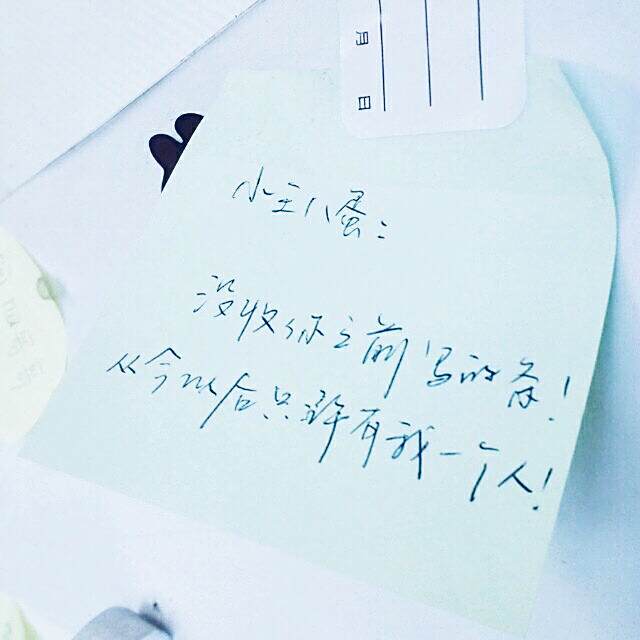 月
日
小王八蛋:
没收你之前写的条!
从今以后只许有我一个人!